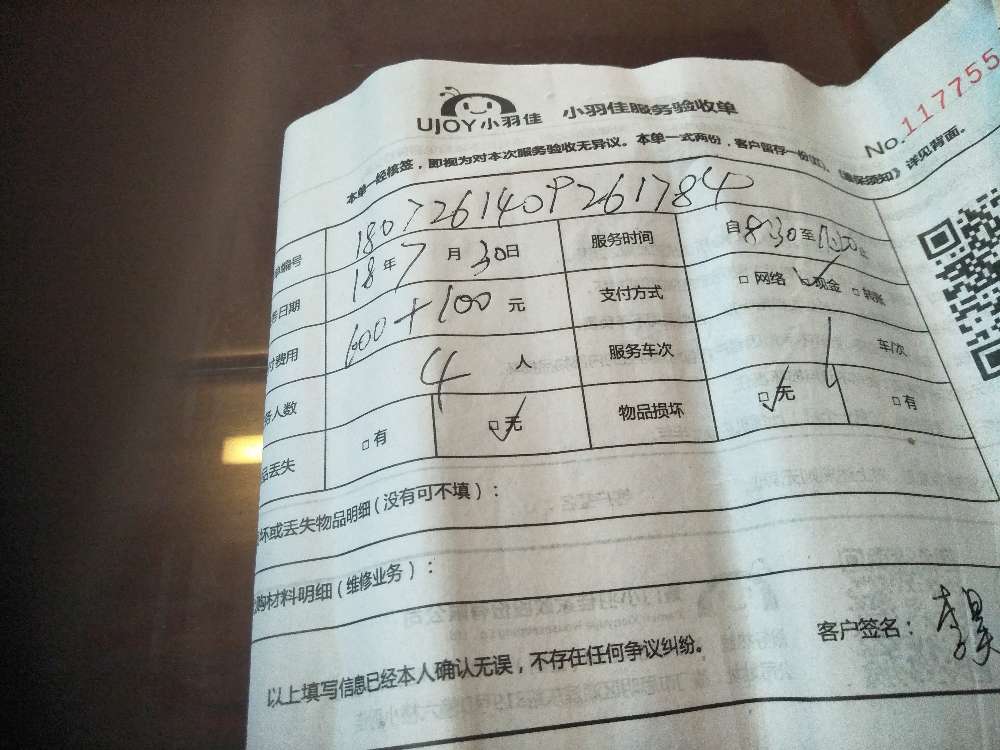 No.117755
UJOY小羽佳 小羽佳服务验收单
本单一经核签，即视为对本次服务验收无异议。本单一式两份，客户留存一份 详见背面。
单编号 180726140926178
日期 18年7月30日 服务时间 自8:30至
付费用 600+100元 支付方式 □网络 现金 □转账
人数 4人 服务车次 1 车/次
品丢失 □有 □无 物品损坏 □无 □有
坏或丢失物品明细（没有可不填）：
购材料明细（维修业务）：
以上填写信息已经本人确认无误，不存在任何争议纠纷。 客户签名：